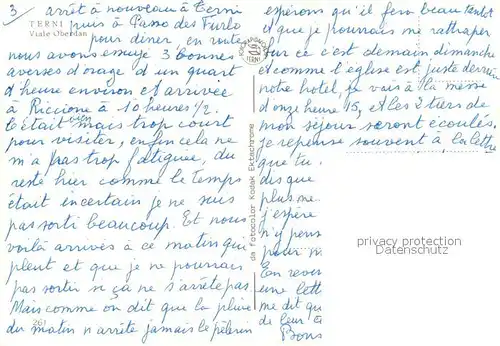 3 arrêt à nouveau à Terni
TERNI
puis à Passo des Furlo
Viale Oberdan
pour diner, en route
nous avons essuyé 3 bonnes
averses d'orage d'un quart
d'heure environ et arrivée
à Riccione à 10 heures 1/2.
C'était bien mais trop court
pour visiter, enfin cela ne
m'a pas trop fatiguée, du
reste hier comme le temps
était incertain je ne suis
pas sorti beaucoup. Et nous
voilà arrivés à ce matin qui
pleut et que je ne pourrais
pas sortir si ça ne s'arrête pas.
Mais comme on dit que la pluie
261
du matin n'arrête jamais le pélerin
da fotocolor Kodak Ektachrome
TERNI
espérons qu'il fera beau tantôt
et que je pourrais me rattraper
sur ce c'est demain dimanche
et comme l'église est juste derrière
notre hôtel, je vais à la messe
d'onze heure 15, et les 2 tiers de
mon séjour seront écoulés,
je repense souvent à la lettre
que tu
dis que
plus me
j'espère
n'y pens
pour
En revoi
une lett
me dit qu
de leur
Bons
privacy protection
Datenschutz